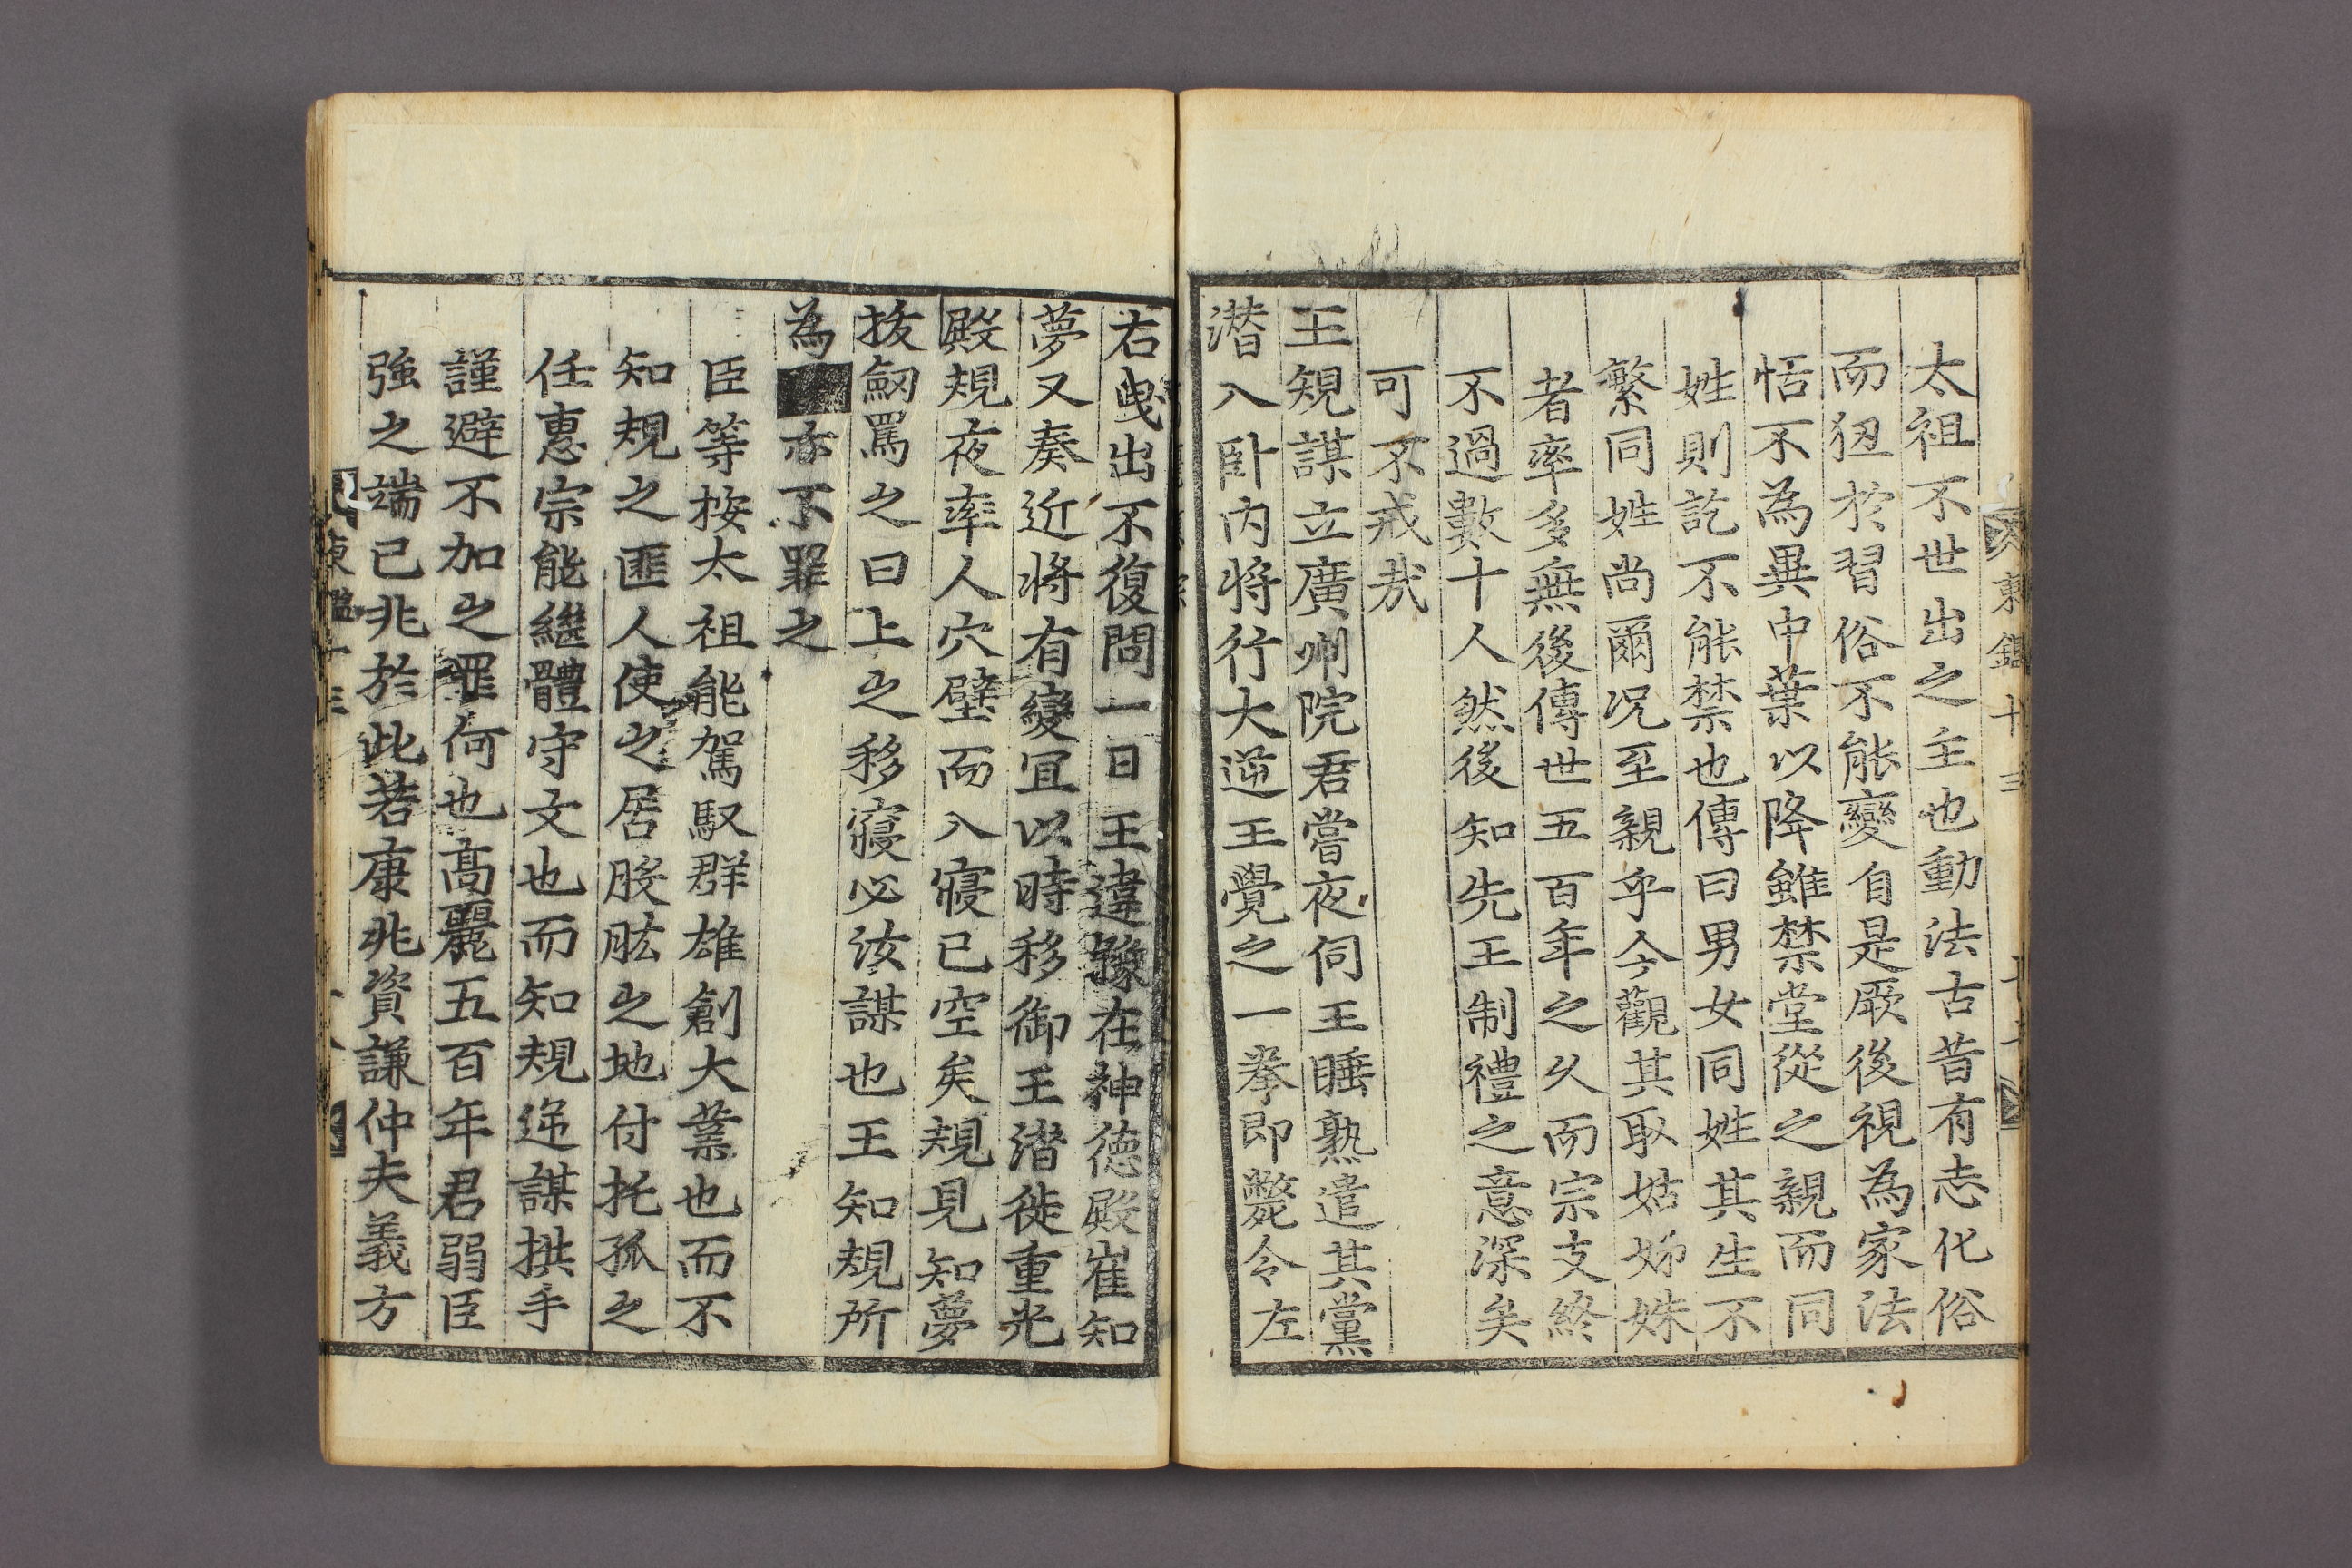 太祖不世出之主也動法古昔有志化俗
而狃於習俗不能變自是厥後視為家法
恬不為異中葉以降雖禁堂從之親而同
姓則訖不能禁也傳曰男女同姓其生不
繁同姓尚爾况至親乎今觀其取姑姊姝
者率多無後傳世五百年之久而宗支終
不過數十人然後知先王制禮之意深矣
可不戒㢤
王規謀立廣州院君嘗夜伺王睡熟遣其黨
潛入卧内将行大逆王覺之一拳即斃令左
右曳出不復問一日王違豫在神德殿崔知
夢又奏近將有變冝以時移御王潜徙重光
殿規夜率人穴壁而入寢已空矣規見知夢
拔劒罵之曰上之移寢必汝謀也王知規所
為亦不罪之
臣等按太祖能駕馭群雄創大業也而不
知規之匪人使之居股肱之地付托孤之
任惠宗能繼體守文也而知規逆謀拱手
謹避不加之罪何也高麗五百年君弱臣
強之端已兆於此若康兆資謙仲夫義方